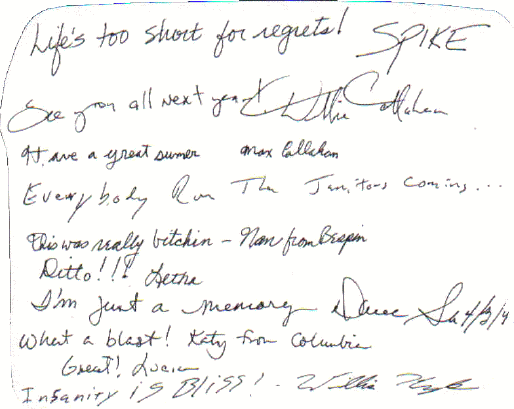 Life's too short for regrets! SPIKE
See you all next year! Callahan
Have a great sumer Max Callahan
Everybody Run The Janitors Coming...
This was really bitchin - Nan from Bespin
Ditto!!!
I'm just a memory
What a blast! Katy from Columbia
Great! Lucia
Insanity is Bliss! - Willie